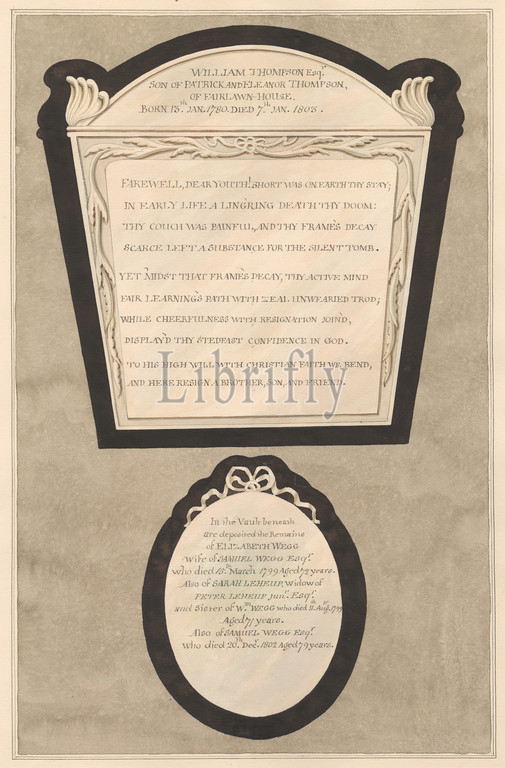 WILLIAM THOMPSON Esqr.
SON OF PATRICK AND ELEANOR THOMPSON,
OF FAIRLAWN-HOUSE.
BORN 13.th JAN. 1780. DIED 7.th JAN. 1803.
FAREWELL, DEAR YOUTH! SHORT WAS ON EARTH THY STAY;
IN EARLY LIFE A LING'RING DEATH THY DOOM:
THY COUCH WAS PAINFUL, AND THY FRAME'S DECAY
SCARCE LEFT A SUBSTANCE FOR THE SILENT TOMB.
YET 'MIDST THAT FRAME'S DECAY, THY ACTIVE MIND
FAIR LEARNING'S PATH WITH ZEAL UNWEARIED TROD;
WHILE CHEERFULNESS WITH RESIGNATION JOIN'D,
DISPLAY'D THY STEDFAST CONFIDENCE IN GOD.
TO HIS HIGH WILL WITH CHRISTIAN FAITH WE BEND,
AND HERE RESIGN A BROTHER, SON, AND FRIEND.
Librifly
In the Vault beneath
are deposited the Remains
of ELIZABETH WEGG
Wife of SAMUEL WEGG Esqr.
who died 13.th March 1799 Aged 72 years.
Also of SARAH LEHEUP, Widow of
PETER LEHEUP junr. Esqr.
and Sister of Wm. WEGG who died 11.th Augt. 1799
Aged 71 years.
Also of SAMUEL WEGG Esqr.
who died 20.th Decr. 1802 Aged 79 years.